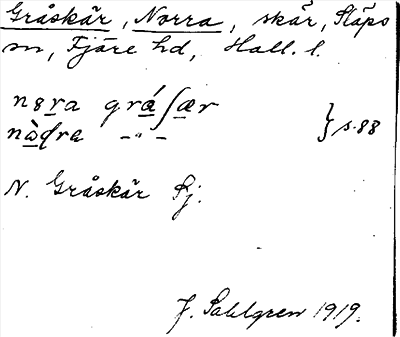 Gråskär, Norra, skär, Släps
sn, Fjäre hd, Hall. l.
nɵra grá ʃær
nàdra -"- } s. 88
N. Gråskär Sj.
J. Sahlgren 1919.